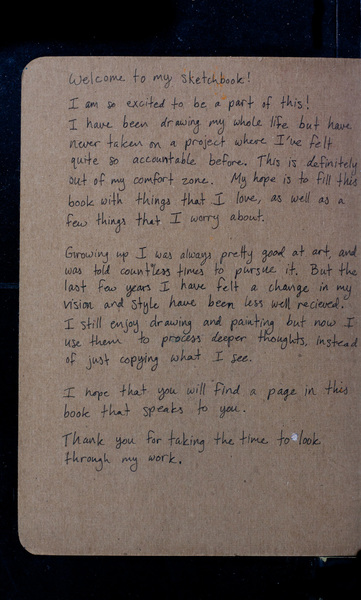 Welcome to my sketchbook!
I am so excited to be a part of this!
I have been drawing my whole life but have
never taken on a project where I've felt
quite so accountable before. This is definitely
out of my comfort zone. My hope is to fill this
book with things that I love, as well as a
few things that I worry about.
Growing up I was always pretty good at art, and
was told countless times to pursue it. But the
last few years I have felt a change in my
vision and style have been less well recieved.
I still enjoy drawing and painting but now I
use them to process deeper thoughts, instead
of just copying what I see.
I hope that you will find a page in this
book that speaks to you.
Thank you for taking the time to look
through my work.